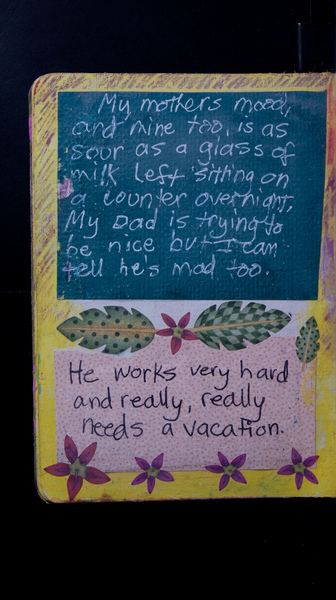 My mothers mood,
and mine too, is as
sour as a glass of
milk left sitting on
a counter overnight.
My Dad is trying to
be nice but I can
tell he's mad too.
He works very hard
and really, really
needs a vacation.